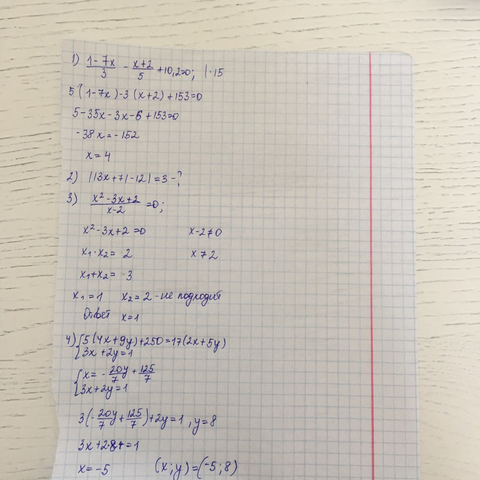 1) (1-7x)/3 - (x+2)/5 + 10,2=0; | ·15
5(1-7x)-3(x+2)+153=0
5-35x-3x-6+153=0
-38x=-152
x=4
2) ||3x+7|-12|=3-?
3) (x²-3x+2)/(x-2) =0;
x²-3x+2=0 x-2≠0
x₁·x₂= 2 x≠2
x₁+x₂= 3
x₁=1 x₂=2 - не подходит
Ответ x=1
4) {5(4x+9y)+250=17(2x+5y)
3x+2y=1
{x=-20y/7+125/7
3x+2y=1
3(-20y/7+125/7)+2y=1, y=8
3x+2·8=1
x=-5 (x;y)=(-5;8)